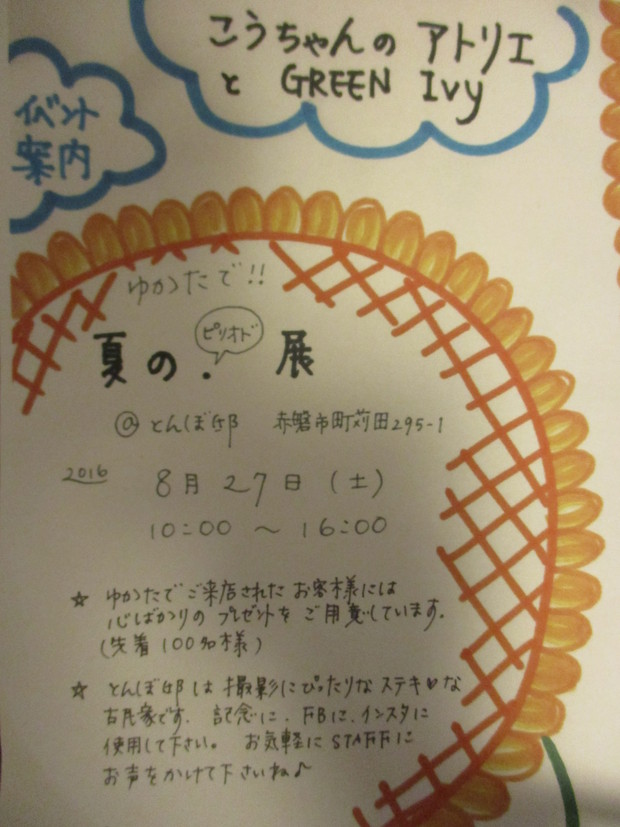 こうちゃんの アトリエ
と GREEN Ivy
イベント
案内
ゆかたで!!
ピリオド
夏の . 展
@ とんぼ邸 赤磐市町苅田295-1
2016 8月 27日 (土)
10:00 〜 16:00
☆ ゆかたで ご来店された お客様には
心ばかりの プレゼントを ご用意しています.
(先着 100名様)
☆ とんぼ邸は 撮影にぴったりな ステキ♥な
古民家です. 記念に. FBに. インスタに
使用して下さい。 お気軽に STAFFに
お声をかけて下さいね♪